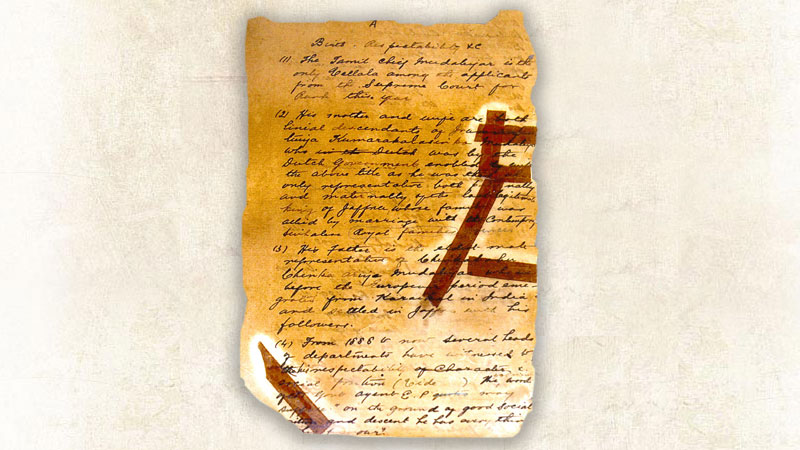 A
Birth - Respectability &c
(1) The Tamil Chief Mudaliyar is the
only Vellala among the applicants
from the Supreme Court for
Rank this year
(2) His mother and wife are both
lineal descendants of
Kumarakulasinha
who in the Dutch was by the
Dutch Government enobled
the above title as he was the
only representative both
and maternally of the last
king of Jaffna whose family was
allied by marriage with
Royal families
(3) His Father is the
representative of
Mudaliyar who
before the European period emi-
grated from in India
and settled in Jaffna with his
followers.
(4) From 1886 to now several heads
of departments have witnessed to
his respectability of Character &
social position (Vide ) The word
of the Govt agent E.P
" on the ground of good social
and descent he has everything